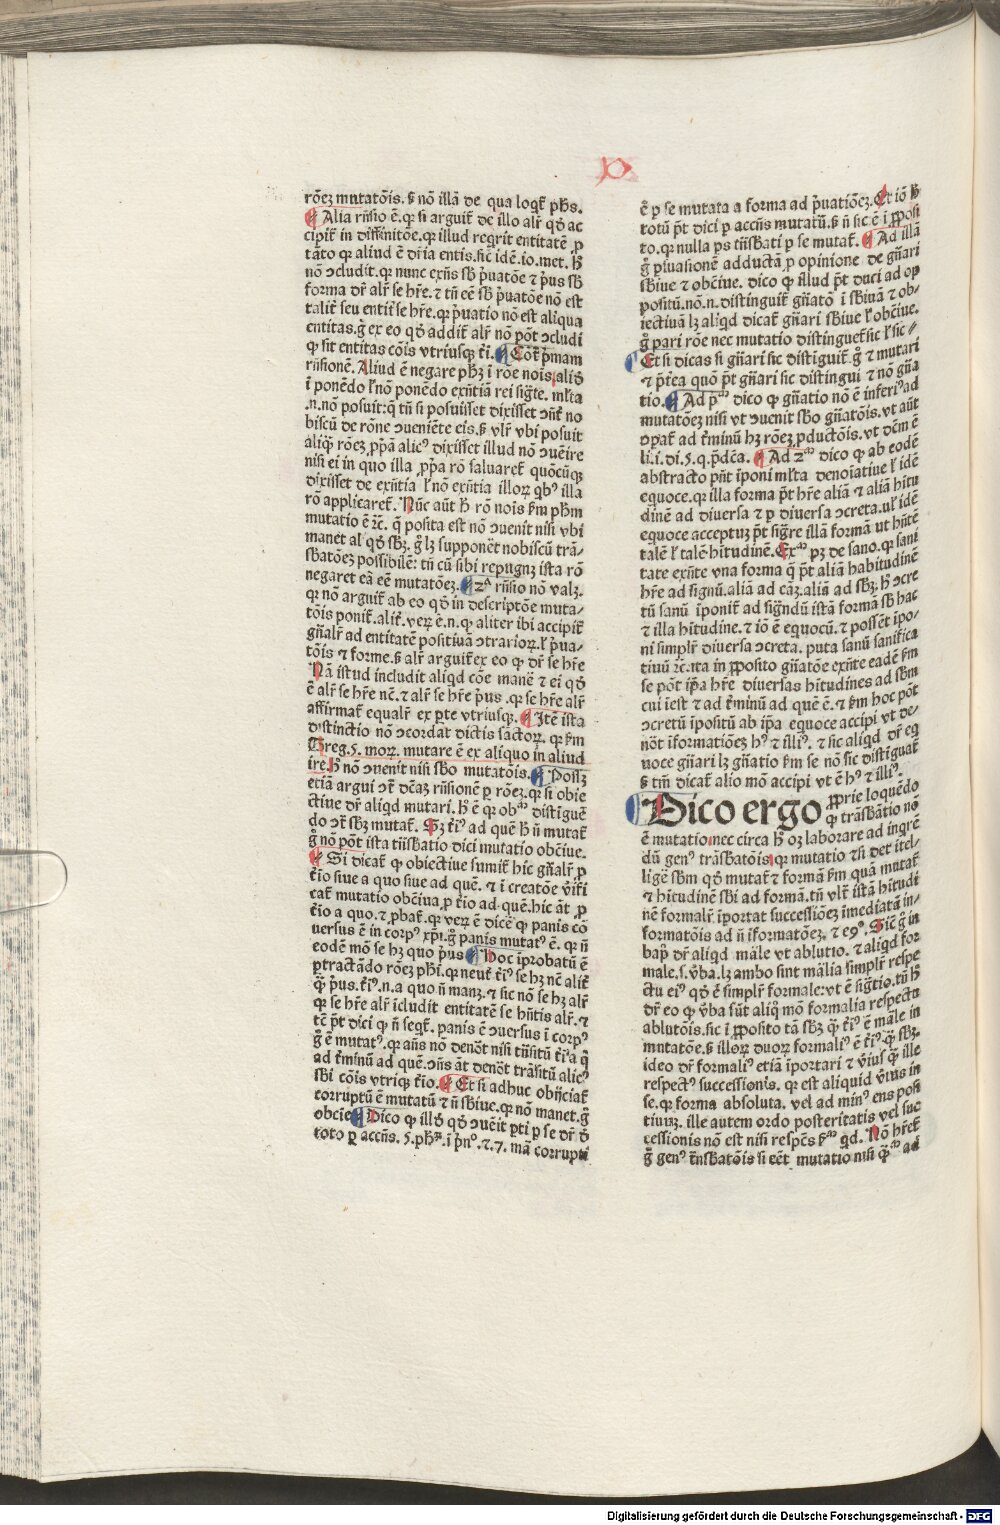 rōeꝫ mutatōis. ß nō illā de qua loqt̄ pħs.
Alia rn̄sio ē. qꝛ si arguit̄ de illo alr̄ qđ ac
cipit̄ in diffinitōe. qꝛ illud reqrit entitatē ꝑ
tāto ꝙ aliud ē dr̄ia entis. sic̄ idē .io. met. ħ
nō ↄcludit. qꝛ nunc exn̄s sb p̄uatōe ⁊ p̄us sb
forma dr̄ alr̄ se hr̄e. ⁊ tn̄ cē sb p̄uatōe nō est
talit̄ seu entit̄ se hr̄e. qꝛ p̄uatio nō est aliqua
entitas. g̊ ex eo qđ addit̄ alr̄ nō pōt ↄcludi
ꝙ sit entitas cōis vtriusqꝫ t̄i. Cōt̄ p̄mam
rn̄sionē. Aliud ē negare pħꝫ i rōe nois aliđ
i ponēdo ł nō ponēdo exn̄tiā rei sigt̄e. ml̄ta
.n. nō posuit: q̄ tn̄ si posuisset dixisset ↄn̄t̄ no
biscū de rōne ↄueniēte eis. ß vlr̄ vbi posuit
aliq̄ rōeꝫ ꝓp̄a alicꝰ dixisset illud nō ↄuēire
nisi ei in quo illa ꝓp̄a rō saluaret̄ quōcūqꝫ
dixisset de exn̄tia ł nō exn̄tia illoꝝ qbꝰ illa
rō applicaret̄. Nūc aūt ħ rō nois ẜm pħm
mutatio ē ⁊c̄. q̄ posita est nō ↄuenit nisi vbi
manet al qđ sbꝫ. g̊ lꝫ supponēt nobiscū trā-
sbatōeꝫ possibilē: tn̄ cū sibi repugnꝫ ista rō
negaret eā eē mutatōeꝫ. 2ᵃ rn̄sio nō valꝫ.
qꝛ nō arguit̄ ab eo qđ in descriptōe muta-
tōis ponit̄. alit̄. veꝝ ē.n. ꝙ aliter ibi accipit̄
gn̄alr̄ ad entitatē positiuā ↄtrarioꝝ. ł p̄ua-
tōis ⁊ forme. ß alr̄ arguit̄ ex eo ꝙ dr̄ se hr̄e
Nā istud includit aliqd cōe manē ⁊ ei qđ
ē alr̄ se hr̄e nc̄. ⁊ alr̄ se hr̄e p̄us .qꝛ se hr̄e alr̄
affirmat̄ equalr̄ ex ꝑte vtriusqꝫ. Itē ista
distinctio nō ↄcordat dictis sāctoꝝ. qꝛ ẜm
Greg. 5. moꝝ. mutare ē ex aliquo in aliud
ire. ħ nō ↄuenit nisi sbo mutatōis. Possꝫ
etiā argui ↄt̄ dcāꝫ rn̄sionē ꝑ rōeꝫ. qꝛ si obie
ctiue dr̄ aliqd mutari. ħ ē qꝛ obᵐ distiguē
do ↄt̄ sbꝫ mutat̄. Sꝫ t̄iꝰ ad quē ħ n̄ mutat̄
g̊ nō pōt ista trn̄sbatio dici mutatio obc̄iue.
Si dicat̄ ꝙ obiectiue sumit̄ hic gn̄alr̄ ꝑ
t̄io siue a quo siue ad quē. ⁊ i creatōe vr̄i t̄i
cat̄ mutatio obc̄iua ꝑ t̄io ad quē. hic āt ꝑ
t̄io a quo. ⁊ ꝓbat̄. qꝛ veꝝ ē dicē ꝙ panis cō
uersus ē in corpꝰ xp̄i. g̊ panis mutatꝰ ē. qꝛ n̄
eodē mō se hꝫ quo p̄us Hoc īprobatū ē
ꝑtractādo rōeꝫ pħi. qꝛ neut̄ t̄iꝰ se hꝫ nc̄ alit̄
q̄ p̄us. t̄iꝰ.n. a quo n̄ manꝫ. ⁊ sic nō se hꝫ alr̄
qꝛ se hr̄e alr̄ icludit entitatē se hn̄tis alr̄. ⁊
tē p̄t dici ꝙ n̄ seqt̄. panis ē ↄuersus i corpꝰ
g̊ ē mutatꝰ. qꝛ an̄s nō denōt nisi trn̄sitū t̄i a q̊
ad t̄minū ad quē. ↄn̄s āt denōt trāsitū alicꝰ
sbi cōis vtriqꝫ t̄io. Et si adhuc obijciat̄
corruptū ē mutatū ⁊ n̄ sbiue. qꝛ nō manet. g̊
obcie Dico ꝙ illđ qđ ↄuēit ꝑti ꝑ se dr̄ đ
toto ꝑ accn̄s. 5. pħꝝ. i p̄nº. ⁊. 7. mā corrupti
ē ꝑ se mutata a forma ad p̄uatiōeꝫ. Et iō ħ
totū p̄t dici ꝑ accn̄s mutatū. ß n̄ sic ē i ꝓposi
to. qꝛ nulla ps trn̄sbati ꝑ se mutat̄. Ad illā
g̊ p̄iuasionē adductā ꝓ opinione de gn̄ari
sbiue ⁊ obc̄iue. dico ꝙ illud p̄t duci ad op
positū. nō.n. distinguit̄ gn̄atō i sbiuā ⁊ ob-
iectiuā lꝫ aliqd dicat̄ gn̄ari sbiue ł obc̄iue.
g̊ pari rōe nec mutatio distinguet̄ sic ł sic-
Et si dicas si gn̄ari sic distiguit̄. g̊ ⁊ mutari
⁊ p̄t̄ea quō p̄t gn̄ari sic distingui ⁊ nō gn̄a
tio. Ad pᵐ dico ꝙ gn̄atio nō ē inferiꝰ ad
mutatōeꝫ nisi vt ↄuenit sbo gn̄atōis. vt aūt
ↄpat̄ ad t̄minū hꝫ rōeꝫ ꝓductōis. vt dcm̄ ē
li. i. di. 5. q. p̄dc̄a. Ad 2ᵐ dico ꝙ ab eodē
abstracto pn̄t īponi ml̄ta denoiatiue ł idē
equoce. qꝛ illa forma p̄t hr̄e aliā ⁊ aliā hītu
dinē ad diuersa ⁊ ꝑ diuersa ↄcreta. ul̄ idē
equoce acceptuꝫ p̄t sigr̄e illā formā ut hn̄tē
talē ł talē hītudinē. Exᵐ pꝫ de sano. qꝛ sani
tate exn̄te vna forma q̄ p̄t aliā habitudinē
hr̄e ad signū. aliā ad cāꝫ. aliā ad sbꝫ. ħ ↄcre
tū sanū īponit̄ ad signdū istā formā sb hac
⁊ illa hītudine. ⁊ iō ē equocū. ⁊ possēt īpo-
ni simplr̄ diuersa ↄcreta. puta sanū sanifica
tiuū ⁊c̄. ita in ꝓposito gn̄atōe exn̄te eadē ẜm
se pōt ip̄a hr̄e diuersas hītudines ad sbm
cui iest ⁊ ad t̄minū ad quē ē. ⁊ ẜm hoc pōt
ↄcretū īpositū ab ip̄a equoce accipi vt de-
nōt īformatiōeꝫ hꝰ ⁊ illiꝰ. ⁊ sic aliqd dr̄ eq
uoce gn̄ari lꝫ gn̄atio ẜm se nō sic distiguat̄
ß tm̄ dicat̄ alio mō accipi vt ē hꝰ ⁊ illiꝰ.
Dico ergo ꝓprie loquēdo
ꝙ trāsbātio nō
ē mutatio nec circa ħ oꝫ laborare ad ingrē
dū genꝰ trāsbatōis qꝛ mutatio ⁊ si det itel-
ligē sbm qđ mutat̄ ⁊ formā ẜm quā mutat̄
⁊ hītudinē sbi ad formā. tn̄ vlt̄ istā hitudi
nē formalr̄ īportat successiōeꝫ īmediatā in-
formatōis ad n̄ īformatōeꝫ. ⁊ eꝯº. Sic̄ g̊ in
bap̄ dr̄ aliqd māle vt ablutio. ⁊ aliqd for
male. s. v̄ba. lꝫ ambo sint mālia simplr̄ respe
ctu eiꝰ qđ ē simplr̄ formale: vt ē sigtio. tn̄ ħ
dr̄ eo ꝙ v̄ba sūt aliq̊ mō formalia respectu
ablutōis. sic i ꝓposito tā sbꝫ q̄ t̄iꝰ ē māle in
mntatōe. ß illoꝝ duoꝝ formaliꝰ ē t̄iꝰ q̄ sbꝫ.
ideo dr̄ formaliꝰ etiā īportari ⁊ v̄iusꝙ ille
respectꝰ successionis. qꝛ est aliquid v̄ius in
se. qꝛ forma absoluta. vel ad minꝰ ens posi
tiuuꝫ. ille autem ordo posteritatis vel suc
cessionis nō est nisi respc̄s ẜᵐ qd. Nō hr̄et̄
g̊ genꝰ trn̄sbatōis si eēt mutatio nisi q̄ᵐ ad
Digitalisierung gefördert durch die Deutsche Forschungsgemeinschaft - DFG